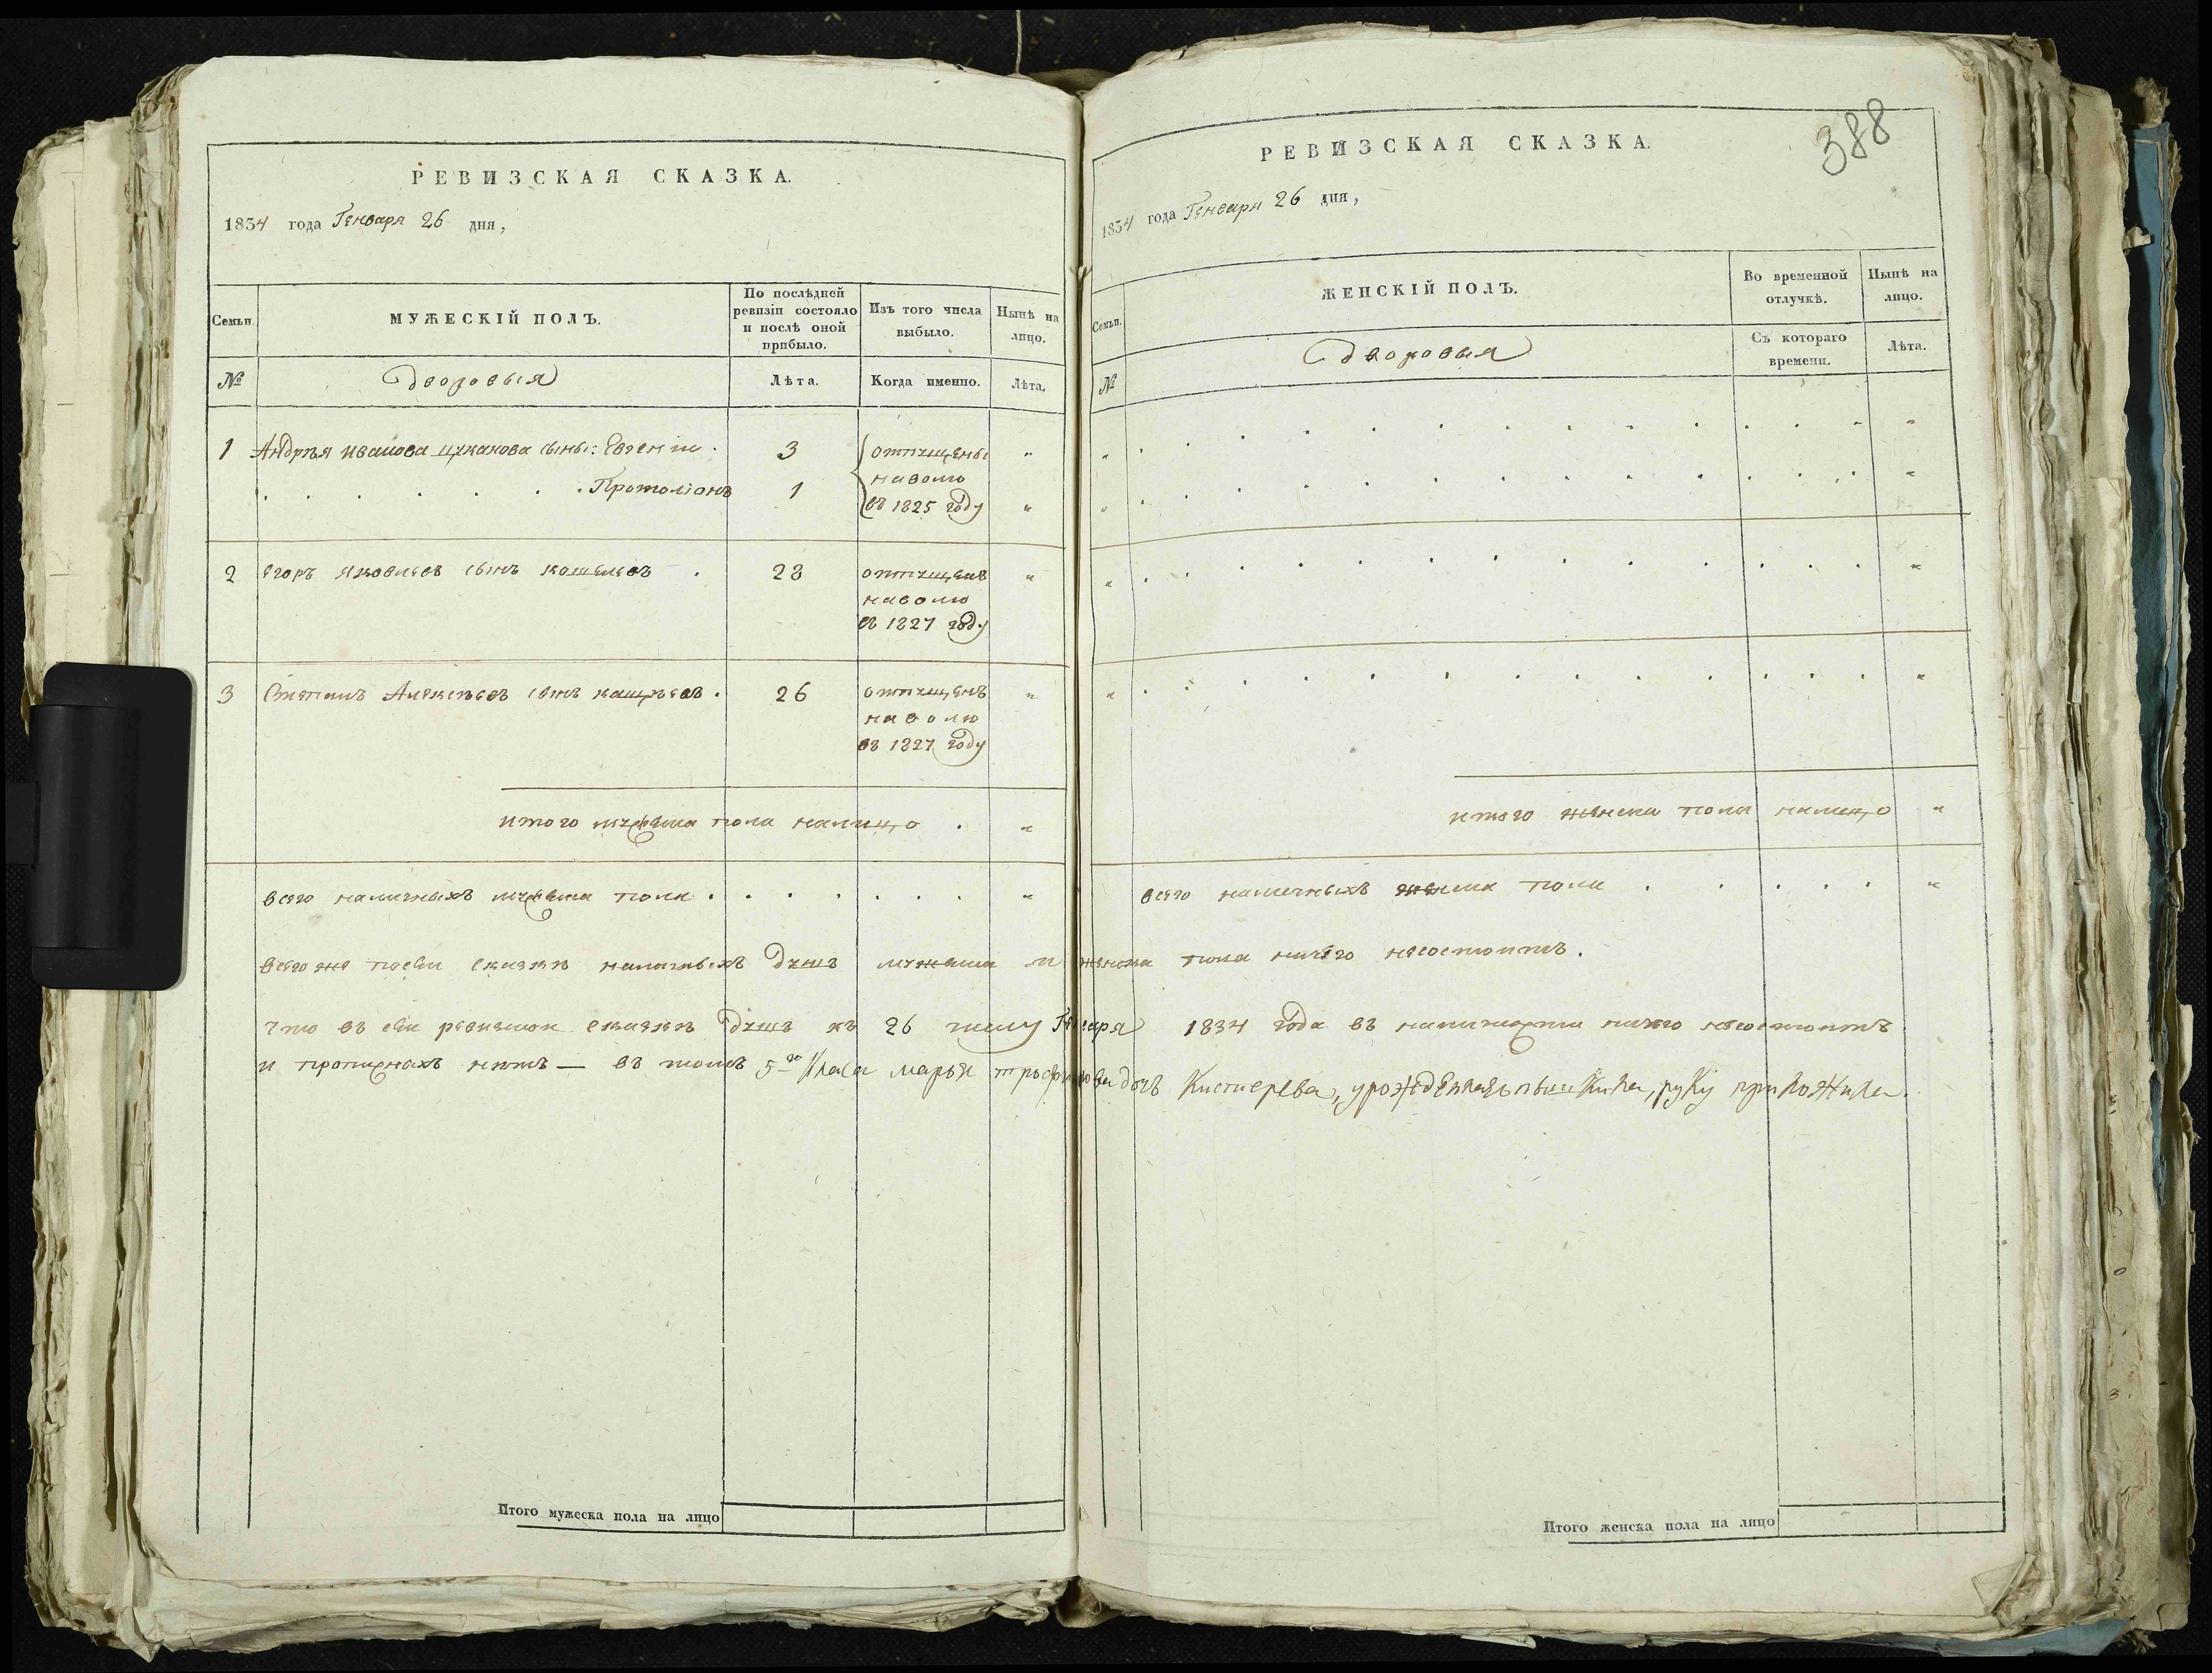 РЕВИЗСКАЯ СКАЗКА.
1834 года Генваря 26 дня,
Семьи.
МУЖЕСКІЙ ПОЛЪ.
По послѣдней ревизіи состояло и послѣ оной прибыло.
Изъ того числа выбыло.
Нынѣ на лицо.
№
Дворовыя
Лѣта.
Когда именно.
Лѣта.
1 Андрѣя Иванова сыны: Евгений . 3 отпущены "
. . . . . . . 1 на волю
въ 1825 году "
2 Егоръ Яковлевъ сынъ . 28 отпущенъ "
на волю
въ 1827 году
3 Степанъ Алексѣевъ сынъ кащѣевъ . 26 отпущенъ "
на волю
въ 1827 году
итого мужеска пола налицо . "
всего наличныхъ мужеска пола . . . . . . . "
РЕВИЗСКАЯ СКАЗКА.
388
1834 года Генваря 26 дня,
Семьи.
ЖЕНСКІЙ ПОЛЪ.
Во временной отлучкѣ.
Нынѣ на лицо.
№
Дворовыя
Съ котораго времени.
Лѣта.
итого женска пола налицо "
всего наличныхъ женска пола . . . . . "
всего же посей сказкѣ наличныхъ душъ мужеска и женска пола ничего несостоитъ.
что въ сей ревиской сказкѣ душъ къ 26 числу Генваря 1834 года въ наличности ничего несостоитъ
и прописныхъ нѣтъ — въ томъ 5го Класа марья дочь урожденная руку приложила.
Итого мужеска пола на лицо
Итого женска пола на лицо